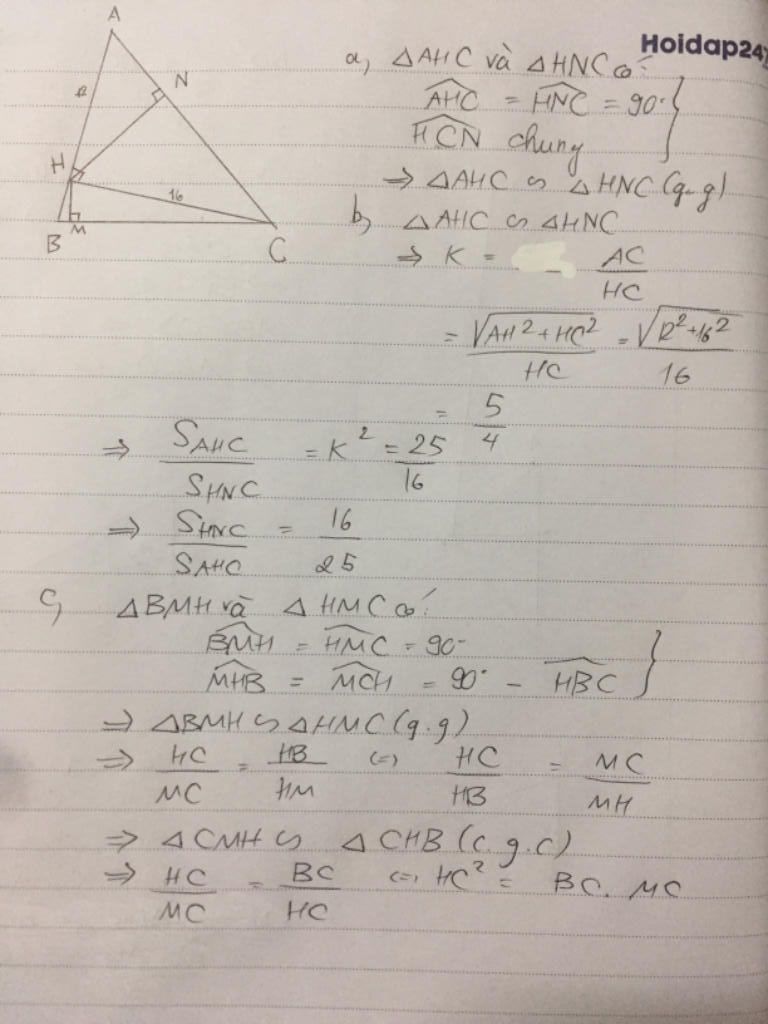 Hoidap247
A
N
12
H
16
B
M
C
a, △AHC và △HNC có:
AHC = HNC = 90°
HCN chung
⇒ △AHC ∽ △HNC (g.g)
b, △AHC ∽ △HNC
⇒ K = AC/HC
= √(AH² + HC²)/HC = √(12² + 16²)/16
= 5/4
⇒ S_AHC/S_HNC = K² = 25/16
⇒ S_HNC/S_AHC = 16/25
c, △BMH và △HMC có:
BMH = HMC = 90°
MHB = MCH = 90° - HBC
⇒ △BMH ∽ △HMC (g.g)
⇒ HC/MC = HB/HM (=) HC/HB = MC/MH
⇒ △CMH ∽ △CHB (c.g.c)
⇒ HC/MC = BC/HC (=) HC² = BC. MC